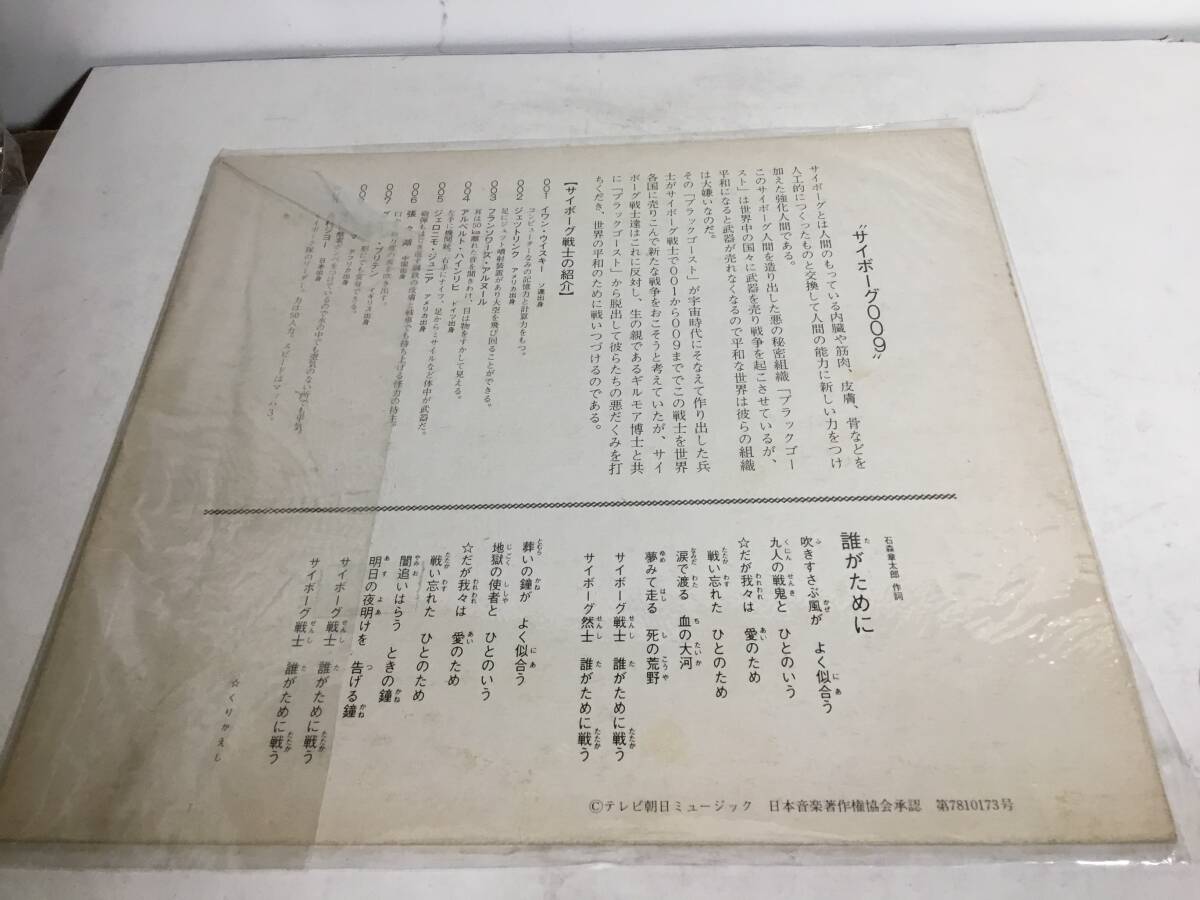 〝サイボーグ009〟
サイボーグとは人間のもっている内臓や筋肉、皮膚、骨などを
人工的につくったものと交換して人間の能力に新しい力をつけ
加えた強化人間である。
このサイボーグ人間を造り出した悪の秘密組織「ブラックゴー
スト」は世界中の国々に武器を売り戦争を起こさせているが、
平和になると武器が売れなくなるので平和な世界は彼らの組織
は大嫌いなのだ。
その「ブラックゴースト」が宇宙時代にそなえて作り出した兵
士がサイボーグ戦士で001から009まででこの戦士を世界
各国に売りこんで新たな戦争をおこそうと考えていたが、サイ
ボーグ戦士達はこれに反対し、生の親であるギルモア博士と共
に「ブラックゴースト」から脱出して彼らたちの悪だくみを打
ちくだき、世界の平和のために戦いつづけるのである。
【サイボーグ戦士の紹介】
001 イワン・ウイスキー ソ連出身
コンピューターなみの記憶力と計算力をもつ。
002 ジェットリンク アメリカ出身
足にジェット噴射装置があり大空を飛び回ることができる。
003 フランソワーズ・アルヌール
耳は50km離れた音を聞きわけ、目は物をすかして見える。
004 アルベルト・ハインリヒ ドイツ出身
左手に機関銃、右手にナイフ、足からミサイルなど体中が武器だ。
005 ジェロニモ・ジュニア アメリカ出身
砲弾もはじき返す鋼鉄の皮膚と戦車でも持ち上げる怪力の持主。
006 張々湖 中国出身
007 ・ブリテン イギリス出身
にでも変身できる。
アフリカ出身
ジョー 日本出身
のリーダー。力は50人力、スピードはマッハ3。
誰がために
石森章太郎 作詞
吹きすさぶ風が よく似合う
九人の戦鬼と ひとのいう
☆だが我々は 愛のため
戦い忘れた ひとのため
涙で渡る 血の大河
夢みて走る 死の荒野
サイボーグ戦士 誰がために戦う
サイボーグ然士 誰がために戦う
葬いの鐘が よく似合う
地獄の使者と ひとのいう
☆だが我々は 愛のため
戦い忘れた ひとのため
闇追いはらう ときの鐘
明日の夜明けを 告げる鐘
サイボーグ戦士 誰がために戦う
サイボーグ戦士 誰がために戦う
☆くりかえし
©テレビ朝日ミュージック 日本音楽著作権協会承認 第7810173号